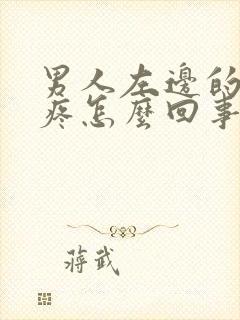 男人左邊的
疼怎麼回事
蔣武